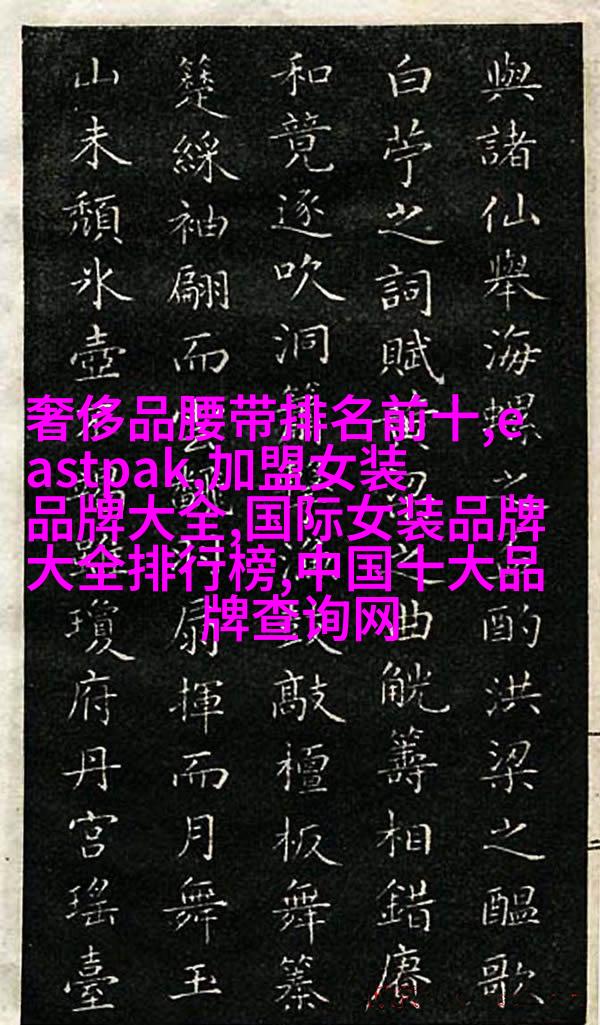 與諸仙舉海螺之酌洪梁之醞歌
白苧之詞賦之曲觥籌相錯賡
和竟逐吹洞鼓敲檀板舞
綵袖翩而扇揮而月舞玉
山未頹氷壺瓊府丹宮瑤臺
奢侈品腰带排名前十,e
astpak,加盟女装
品牌大全,国际女装品牌
大全排行榜,中国十大品
牌查询网